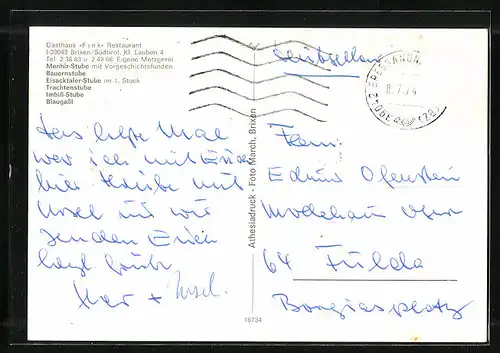 Gasthaus »Fink« Restaurant
I-39042 Brixen/Südtirol, Kl. Lauben 4
Tel. 2 38 83 u. 2 48 68 Eigene Metzgerei
Menhir-Stube mit Vorgeschichtsfunden
Bauernstube
Eisacktaler-Stube im 1. Stock
Trachtenstube
Imbiß-Stube
Blaugaßl
39042 BRESSANONE
8.7.74
Das letzte Mal
war ich mit Euch
hier heute mit
Ursel und wir
senden Euch
herzl. Grüße
+ Ursel.
Athesiadruck - Foto March, Brixen
Fam
Edmund
Modehaus
64 Fulda
Borgiasplatz
16734